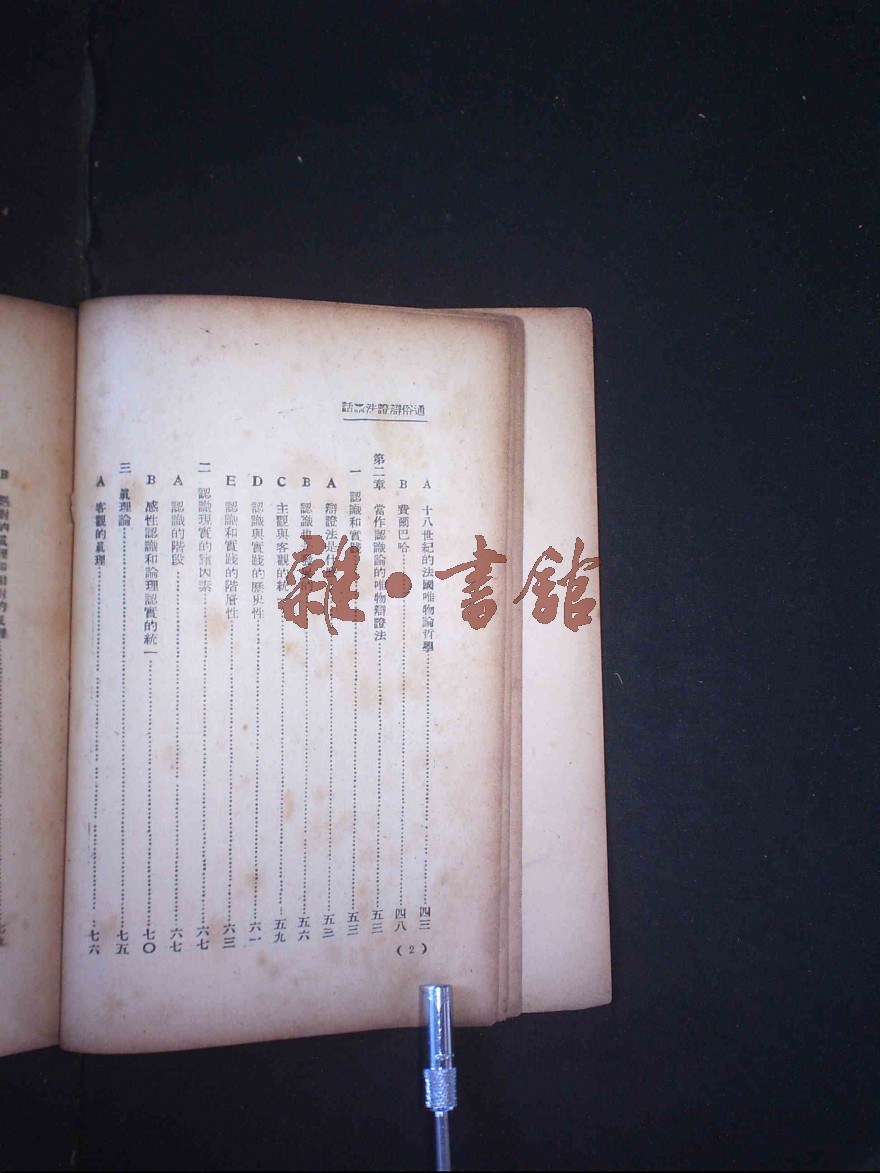 通俗辯證法講話
A 十八世紀的法國唯物論哲學 四三
B 費爾巴哈 四八
第二章 當作認識論的唯物辯證法 五三
一 認識和實踐 五三
A 辯證法是什 五三
B 認識也 的 五六
C 主觀與客觀的統一 五九
D 認識與實踐的歷史性 六一
E 認識和實踐的階層性 六三
二 認識現實的諸因素 六七
A 認識的階段 六七
B 感性認識和論理認實的統一 七〇
三 眞理論 七五
A 客觀的眞理 七六
(2)
B 的眞理和相對的眞理
雜·書館